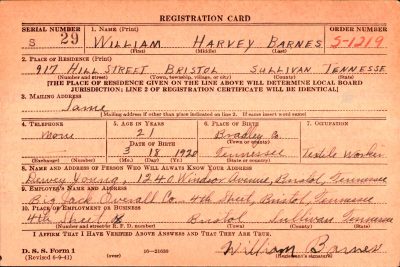 REGISTRATION CARD
SERIAL NUMBER 1. NAME (Print) ORDER NUMBER
S 29 WILLIAM HARVEY BARNES S-1219
(First) (Middle) (Last)
2. PLACE OF RESIDENCE (Print)
917 HILL STREET BRISTOL SULLIVAN TENNESSE
(Number and street) (Town, township, village, or city) (County) (State)
[THE PLACE OF RESIDENCE GIVEN ON THE LINE ABOVE WILL DETERMINE LOCAL BOARD
JURISDICTION; LINE 2 OF REGISTRATION CERTIFICATE WILL BE IDENTICAL]
3. MAILING ADDRESS
Same
[Mailing address if other than place indicated on line 2. If same insert word same]
4. TELEPHONE 5. AGE IN YEARS 6. PLACE OF BIRTH 7. OCCUPATION
None 21 Bradley Co.
DATE OF BIRTH (Town or county)
3 18 1920 Tennessee Textile Worker
(Exchange) (Number) (Mo.) (Day) (Yr.) (State or country)
8. NAME AND ADDRESS OF PERSON WHO WILL ALWAYS KNOW YOUR ADDRESS
1240 Windsor Avenue, Bristol, Tennessee
9. EMPLOYER'S NAME AND ADDRESS
Big Jack Overall Co. 4th Street, Bristol, Tennessee
10. PLACE OF EMPLOYMENT OR BUSINESS
4th Street Bristol Sullivan Tennessee
(Number and street or R. F. D. number) (Town) (County) (State)
I AFFIRM THAT I HAVE VERIFIED ABOVE ANSWERS AND THAT THEY ARE TRUE.
D. S. S. Form 1
(Revised 6-9-41) 16—21630 William Barnes
(Registrant's signature)